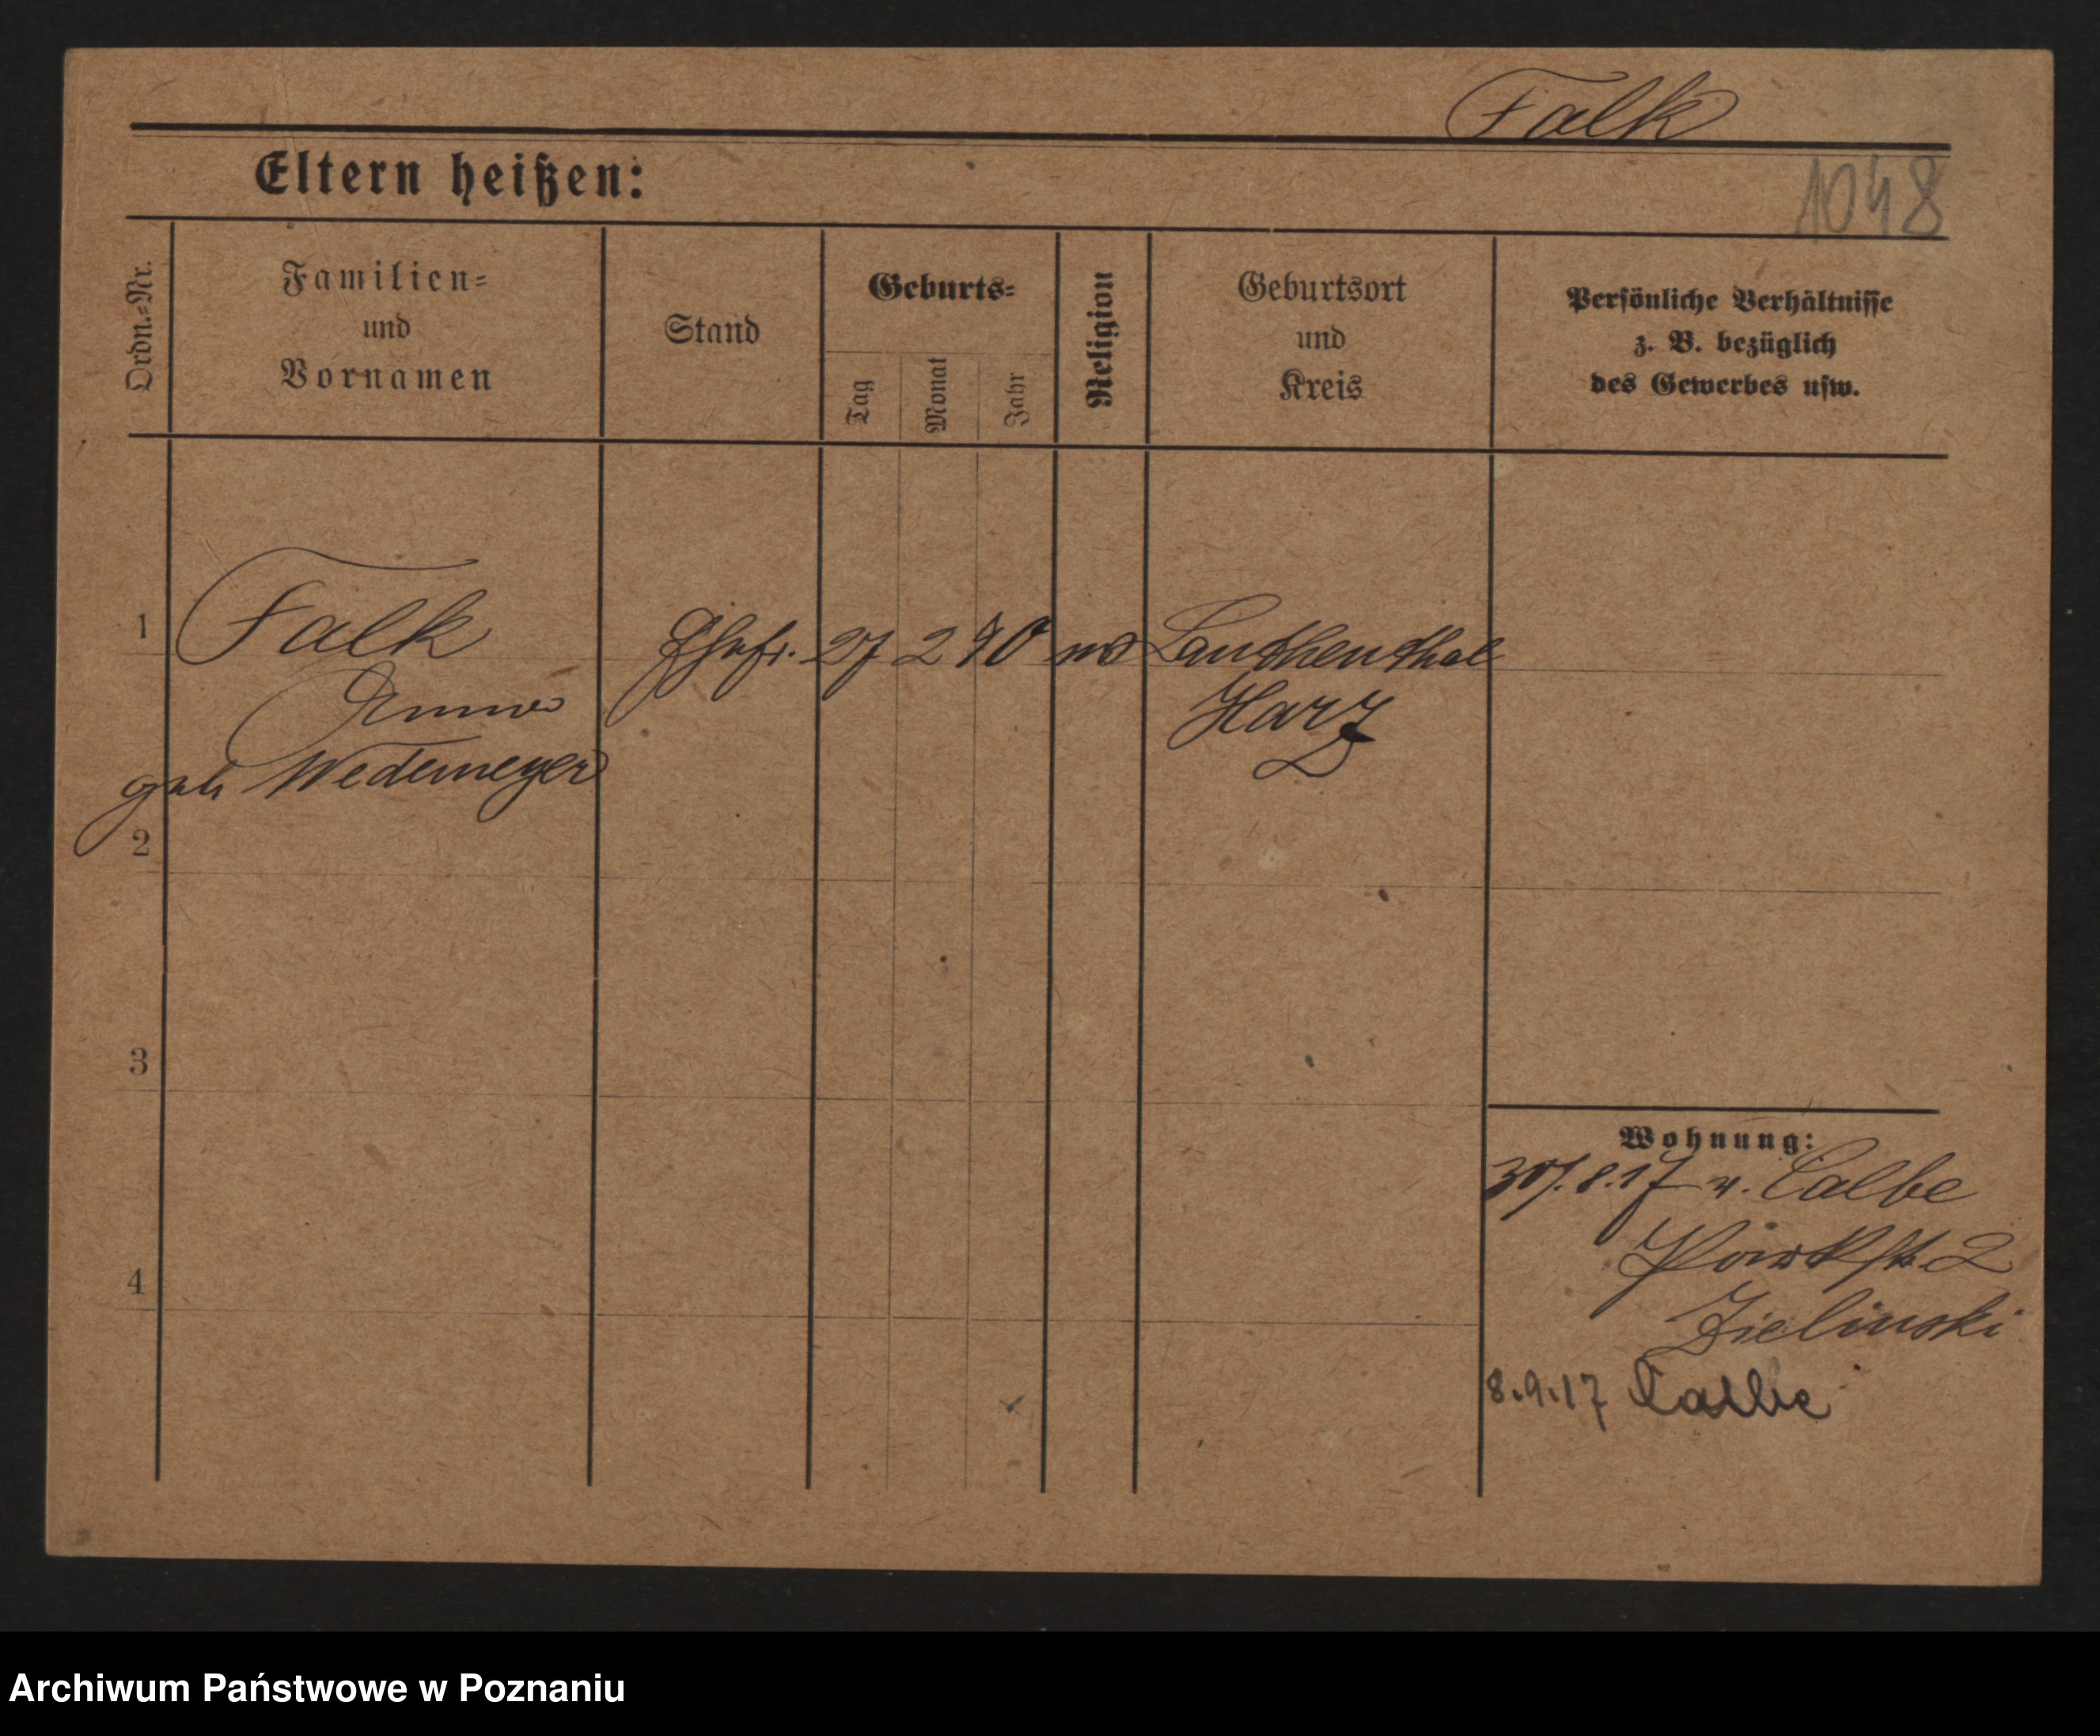 Falk
Eltern heißen:
1048
Ordn.-Nr.
Familien-
und
Vornamen
Stand
Geburts-
Tag
Monat
Jahr
Religion
Geburtsort
und
Kreis
Persönliche Verhältnisse
z. B. bezüglich
des Gewerbes usw.
1 Falk Ehefr. 27 2 90 Lauthenthal
Anna Harz
geb Wedemeyer
2
3
4
Wohnung:
30/.8.17 v. Calbe
2
Zielinski
8.9.17 Calbe
Archiwum Państwowe w Poznaniu